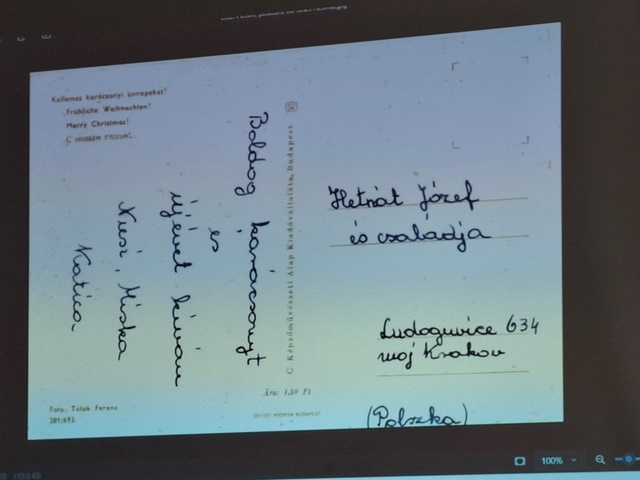 Kellemes karácsonyi ünnepeket!
Fröhliche Weihnachten!
Merry Christmas!
С НОВЫМ ГОДОМ!
Boldog karácsonyt
és
újévet kíván
Nusi, Miska
Katica
Foto: Tulok Ferenc
281/693
C Képzőművészeti Alap Kiadóvállalata, Budapest
Ára: 1,50 Ft
Hetnát József
és családja
Ludoguvice 634
woj Krakow
(Polszka)
100%